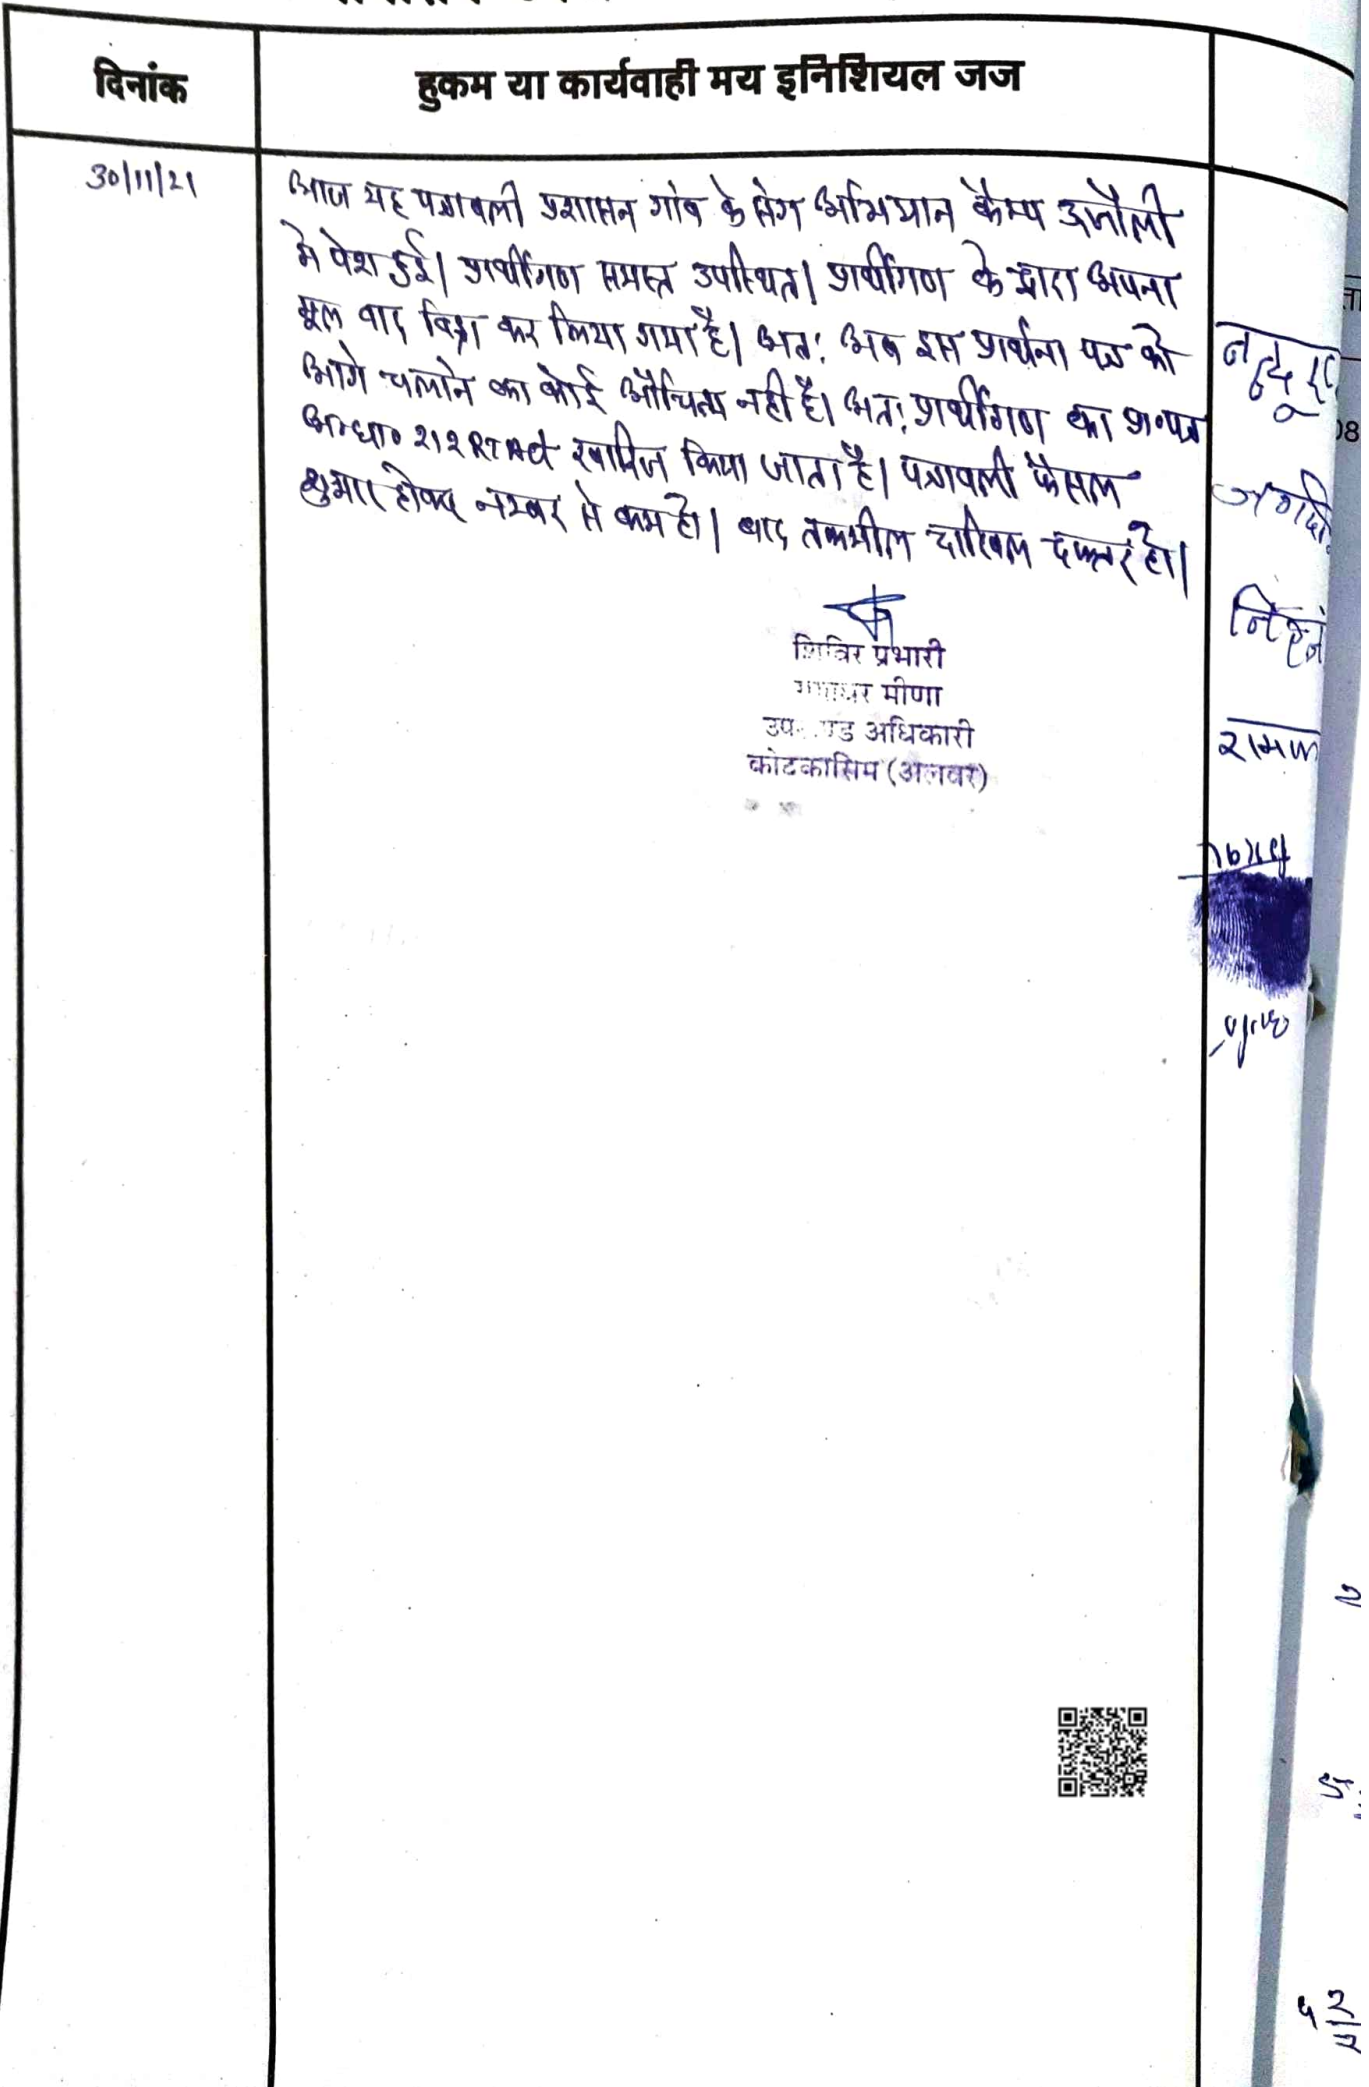 दिनांक
हुकम या कार्यवाही मय इनिशियल जज
30/11/21
आज यह पत्रावली प्रशासन गांव के संग अभियान कैम्प उजौली
मे पेश हुई। प्रार्थीगण समस्त उपस्थित। प्रार्थीगण के द्वारा अपना
मूल वाद विड्रा कर लिया गया है। अतः अब इस प्रार्थना पत्र को
आगे चलाने का कोई औचित्य नही है। अतः प्रार्थीगण का प्रा०पत्र
अ०धा० 212 RT Act खारिज किया जाता है। पत्रावली फैसल
शुमार होकर नम्बर से कम हो। बाद तकमील दाखिल दफ्तर हो।
शिविर प्रभारी
मीणा
अधिकारी
कोटकासिम (अलवर)